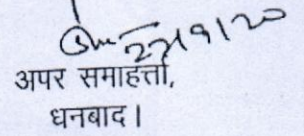 22/9/20
अपर समाहर्त्ता,
धनबाद।